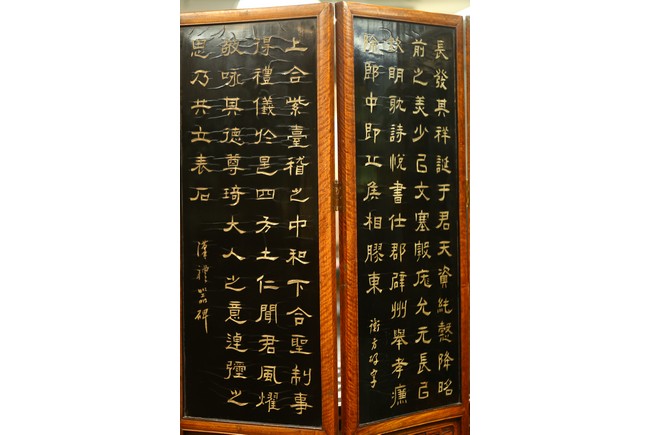 長發其祥誕于君天資純懿降昭
前之美少㠯文塞敦庬允元長㠯
欽明耽詩悅書仕郡辟州舉孝廉
除郎中即丘侯相膠東
衡方碑字
上合紫臺稽之中和下合聖制事
得禮儀於是四方土仁聞君風燿
敬咏其德尊琦大人之意逴彌之
思乃共立表石
漢禮器碑